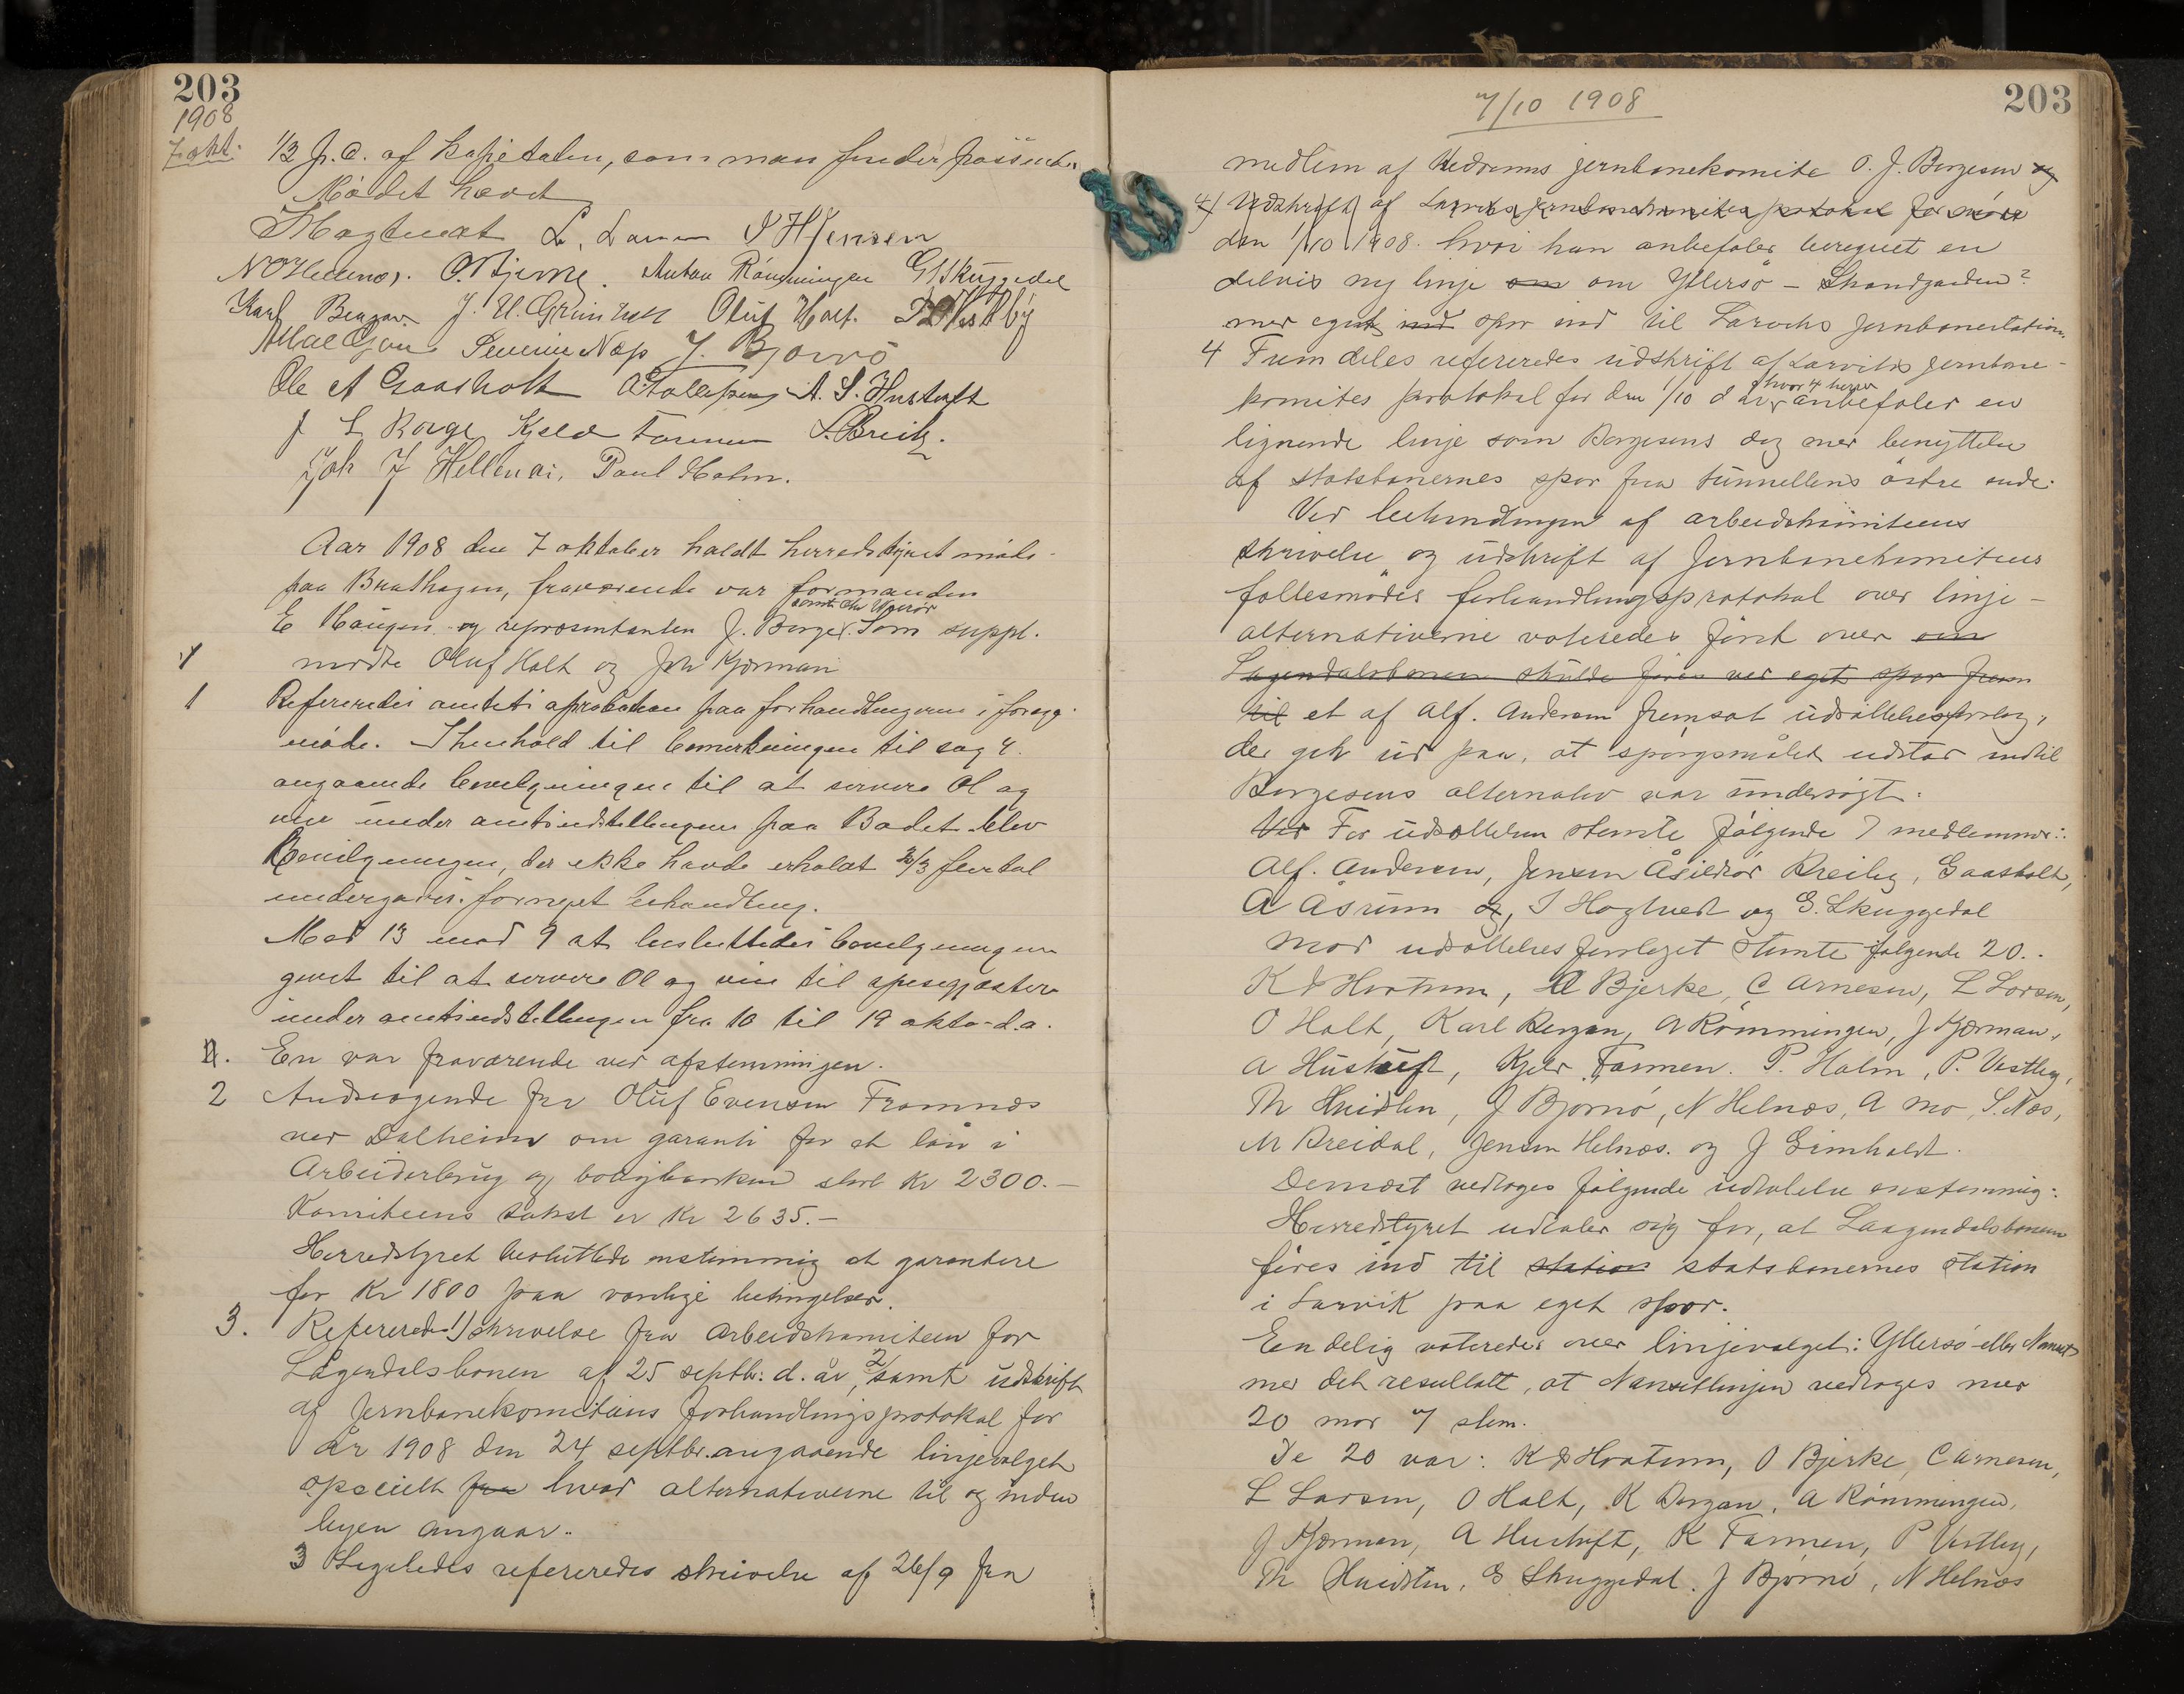 203
1908
7 okt.
1/2 p.c. af kapitalen, som man finder passende.
Mødet hævet
S Hagtvedt L. Larsen S H Jensen
N O Hellenes. O. Bjerke. Anton Rønningen G Skuggedal
Karl Bergan. J. U. Grimholt Oluf Holt. P Vestby
Severin Næs J. Bjørnø
Ole A Gaasholt A Tollefsen A. S. Hustuft
J L Borge Kjeld Farmen S. Breili.
Joh J Hellenæs, Paul Holm.
Aar 1908 den 7 oktober holdt herredstyret møde
paa Brathagen, fraværende var formanden
samt
E Haugen og repræsentanten J. Borge. Som suppl.
mødte Oluf Holt og Joh Kjørman
1
1 Refereredes amtets aprobation paa forhandlingerne i forrige
møde. I henhold til bemerkningen til sag 4.
angaaende bevilgningen til at servere Øl og
vin under amtsudstillingen paa Badet blev
Bevilgningen, der ikke havde erholdt 2/3 flertal
undergaves fornyet behandling.
Med 13 mod 9 at besluttedes bevilgningen
givet til at servere Øl og vin til spisegjæster
under amtsudstillingen fra 10 til 19 okto. d.a.
2. En var fraværende ved afstemningen.
2 Andragende fra Oluf Evensen Framnæs
ved Dalheim om garanti for et lån i
Arbeiderbrug og boligbanken stort Kr 2300.-
Komiteens takst er Kr 2635.-
Herredstyret besluttede enstemmig at garantere
for Kr 1800 paa vanlige betingelser.
3. Refereredes 1) skrivelse fra Arbeidskomiteen for
Lågendalsbanen af 25 septbr. d. år, 2/ samt udskrift
af Jernbanekomiteens forhandlingsprotokol for
år 1908 den 24 septbr. angaaende linjevalget
specielt fra hvad alternativerne til og inden
byen angaar.
3 Ligeledes refereredes skrivelse af 26/9 fra
7/10 1908
203
medlem af Hedrums jernbanekomite O. J. Borgesen og
4) Udskrift af Larviks jernbanekomites protokol for møde
den 1/10 1908. hvori han anbefaler beregnet en
delvis ny linje om om Yttersø - Strandgaden?
med eget ind spor ind til Larviks Jernbanestation.
4 Fremdeles refereredes udskrift af Larviks jernbane-
hvor 4 herrer
komites protokol for den 1/10 d år anbefaler en
lignende linje som Borgesens dog med benyttelse
af statsbanernes spor fra tunnellens østre ende.
Ved behandlingen af arbeidskomiteens
skrivelse og udskrift af Jernbanekomiteens
fællesmødes forhandlingsprotokol over linje-
alternativerne voteredes først over om
Lagendalsbanen skulde føres ved eget spor frem
til et af Alf. Andersen fremsat udsættelsesforslag,
der gik ud paa, at spørgsmålet udstår indtil
Borgesens alternativ var undersøgt.
Ved For udsættelsen stemte følgende 7 medlemmer:
Alf. Andersen, Jensen Åsildrød Breiby, Gaasholt,
A Åsrum og, S Hagtvedt og G. Skuggedal
Mod udsættelsesforslaget stemte følgende 20.
K Hvatum, O Bjerke, C Arnesen, L Larsen,
O Holt, Karl Bergan, A Rømmingen, J Kjørman,
A Hustuft, Kjeld Farmen. P. Holm, P. Vestby,
Th Hvidsten, J Bjørnø, N Helnæs, A Mo, S. Næs,
M Breidal, Jensen Helnæs. og J Grimholdt.
Dernæst vedtoges følgende udtalelse enstemmig:
Herredstyret udtaler sig for, at Laagendalsbanen
føres ind til station statsbanernes station
i Larvik paa eget spor.
Endelig voteredes over linjevalget: Yttersø eller Nanset
med det resultatt, at Nansetlinjen vedtoges med
20 mod 7 stem.
De 20 var: K Hvatum, O Bjerke, C Arnesen,
L Larsen, O Holt, K Bergan, A Rømmingen,
J Kjørman, A Hustuft, K Farmen, P Vestby,
Th Hvidsten, G Skuggedal. J Bjørnø, N Helnæs